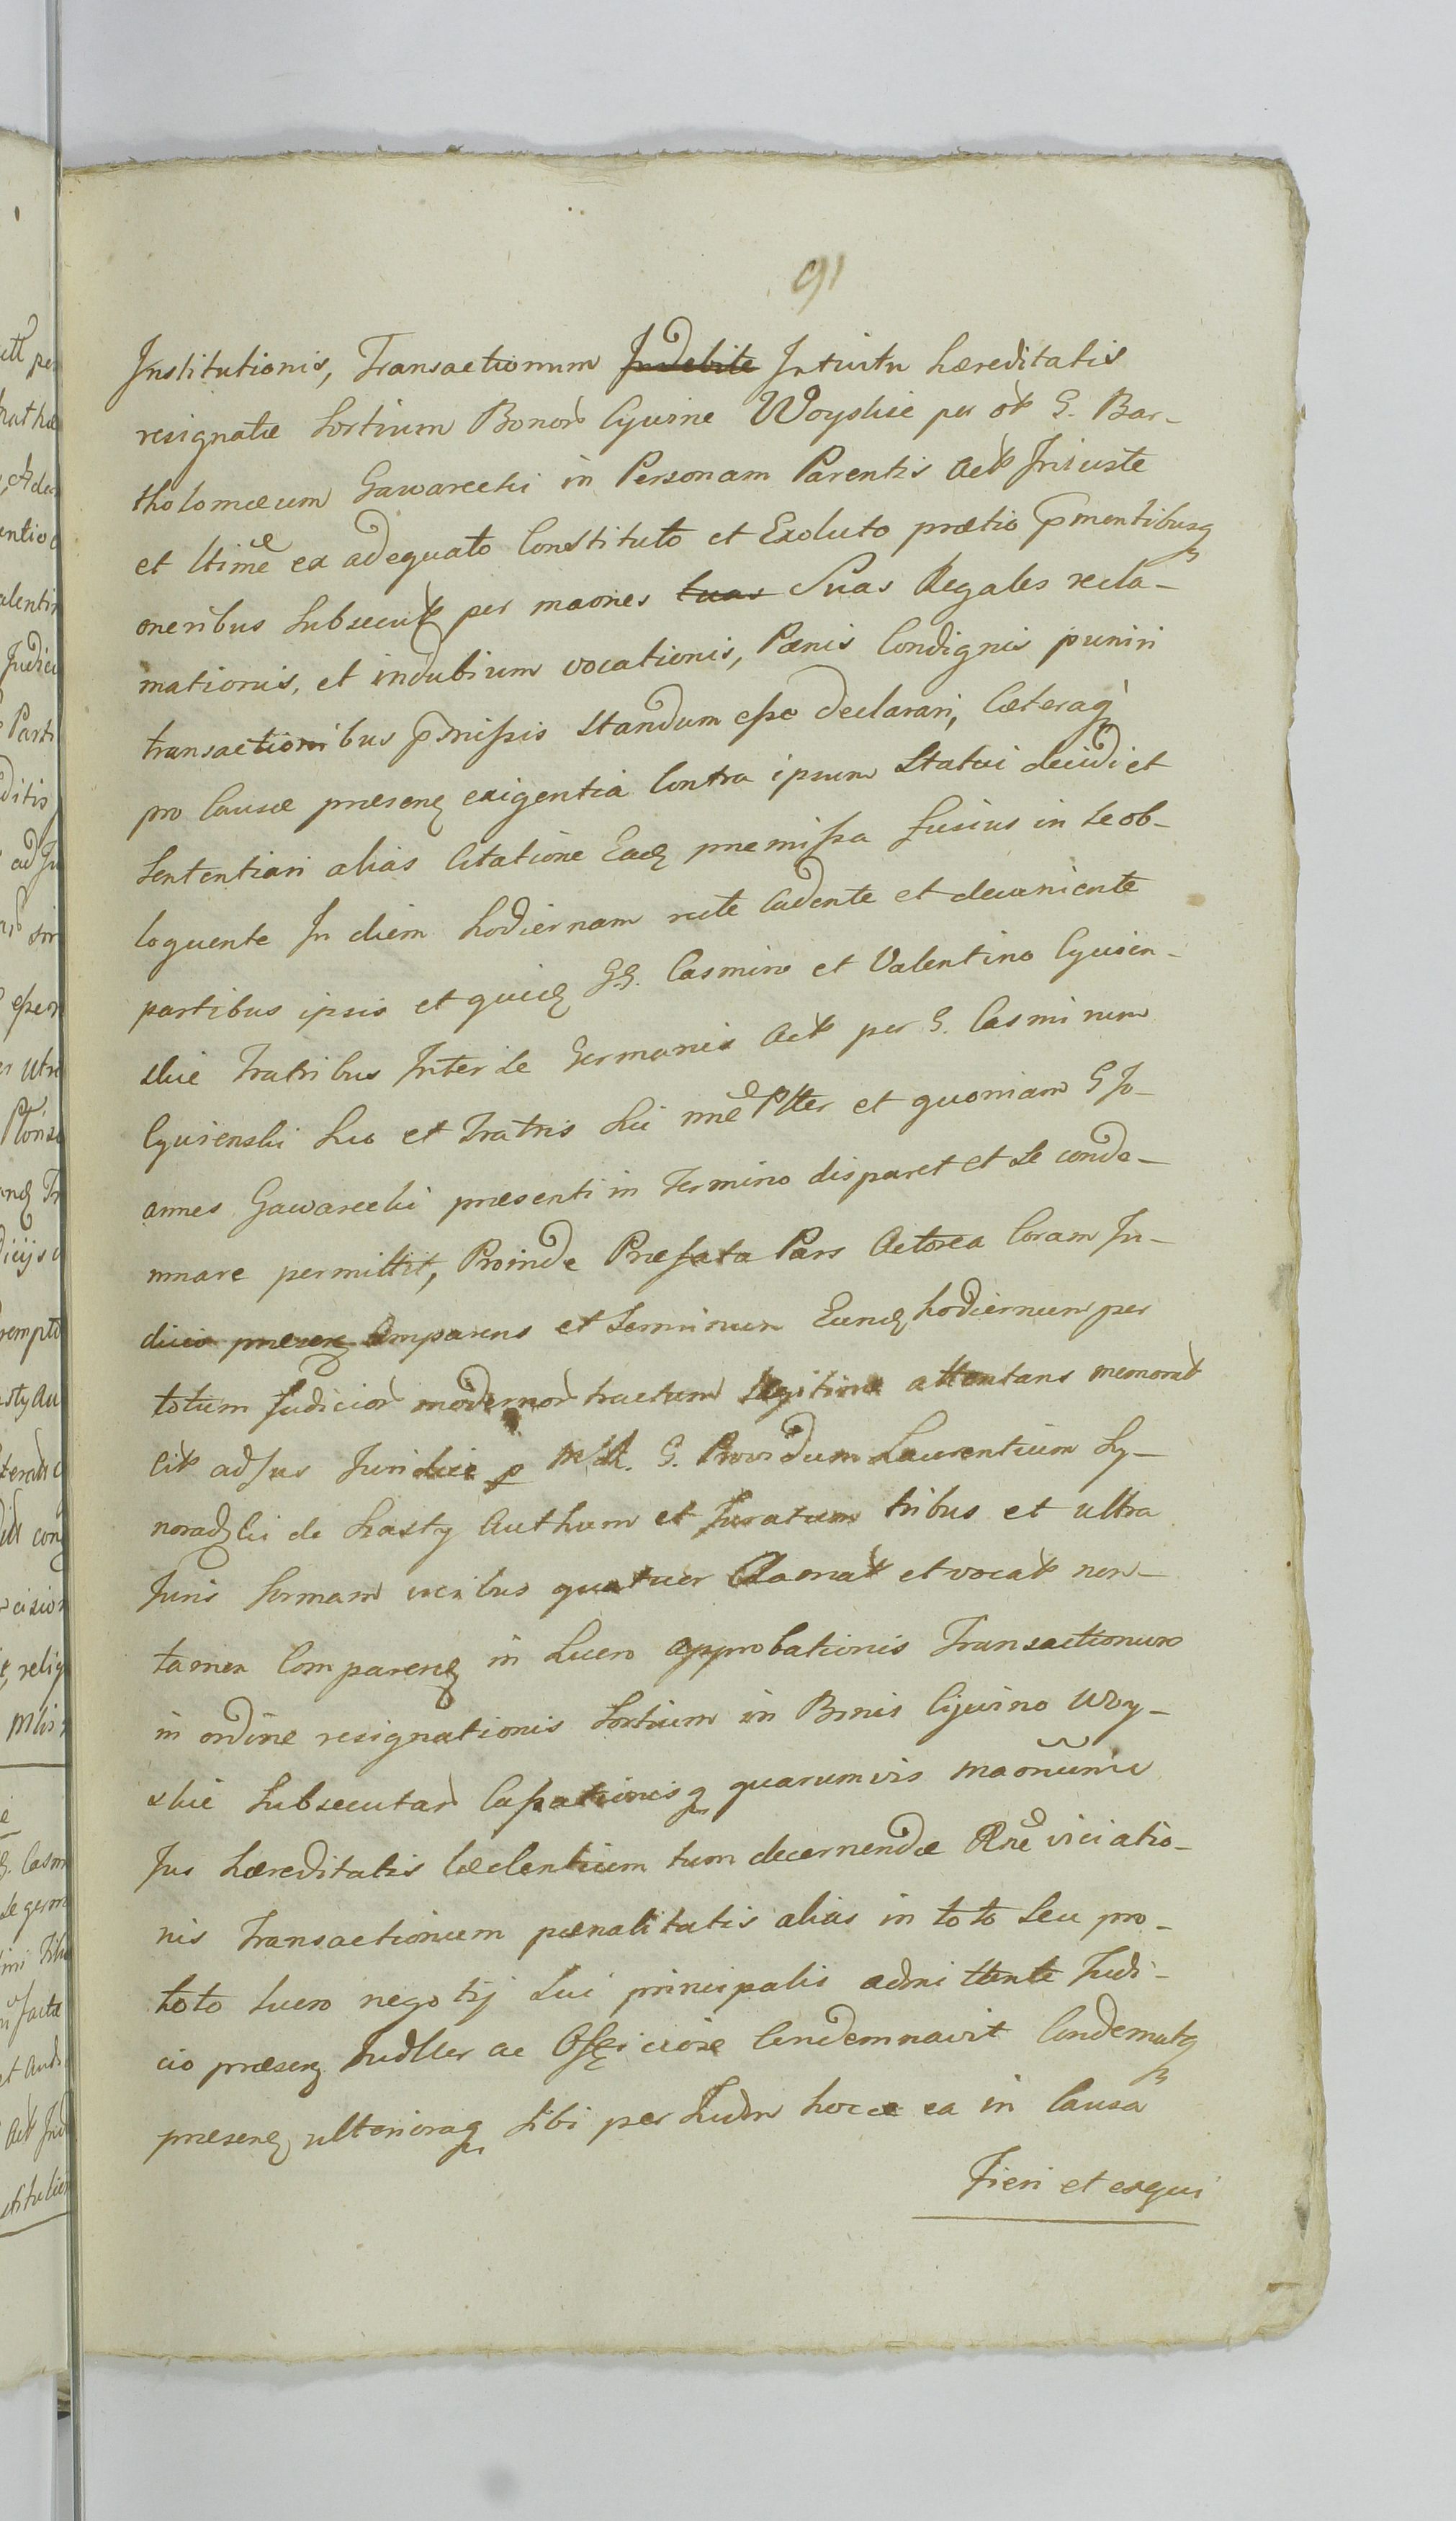 91
Institutionis, Transactionum Indebite Intuitu hæreditatis
resignatæ Sortium Bonor Cyvine Woyskie per ok G. Bar-
tholomæum Gawarecki in Personam Parentis Act Iniuste
et ltimẽ ex adequato Constituto et Exoluto prætio pmentibusq
oneribus Subsecut per maones tuas Suas Regales recla-
mationis, et indubium vocationis, Pœnis Condignis puniri
transactionibus pmissis standum esse declarari, Cæteraq
pro Causæ præsen exigentia Contra ipsum Statui decidi et
Sententiari alias Citatione Ead præmissa fusius in se ob-
loquente In diem hodiernam rite Cadente et deveniente
partibus ipsis et quid GG. Casmiro et Valentino Cywin-
skie Fratribus Inter Se Germanis Act per G. Casmirum
Cywinski Suo et Fratris Sui nnẽ Ptter et quoniam G Jo-
annes Gawarecki præsenti in Termino disparet et Se conde-
mnare permittit, Proinde Præfata Pars Actorea Coram Iu-
dicio præsen Comparens et Terminum Eund hodiernum per
totum Judicior modernor tractum legitime attentans memorat
Cit ad Jus Juridice p MR. G. Providum Laurentium Sy-
noradzki de Szasty Authum et Juratum tribus et ultra
Juris formam vicibus quatuor Clamat et vocat non-
tamen Comparen in Lucro approbationis Transactionum
in ordine resignationis Sortium in Bonis Cywino Woy-
skie Subsecutar Cassationisq quarumvis maonum
Jus hæreditatis lædentium tum decernendæ Rnẽ viciatio-
nis Transactionum pœnalitatis alias in toto Seu pro
toto lucro negotij Sui principalis admittente Judi-
cio præsen Judller ac Officiose Condemnavit Condemnatq
præsen ulterioraq Sibi per Judm hocce ea in Causa
Fieri et exqui